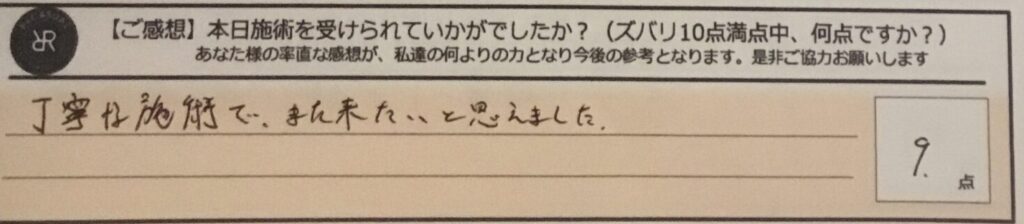 【ご感想】本日施術を受けられていかがでしたか？（ズバリ10点満点中、何点ですか？）
あなた様の率直な感想が、私達の何よりの力となり今後の参考となります。是非ご協力お願いします
丁寧な施術で、また来たいと思えました.
9.
点